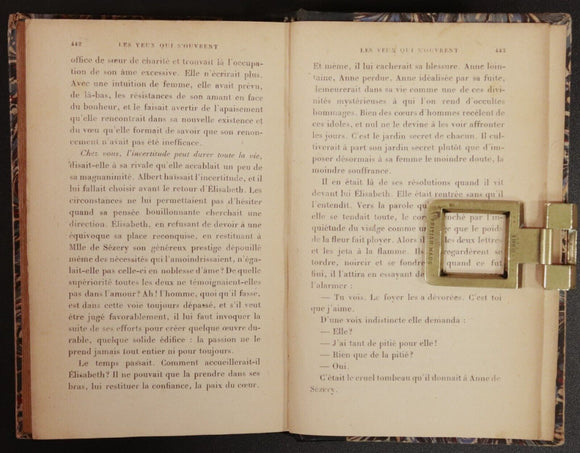 442 LES YEUX QUI S'OUVRENT
office de sœur de charité et trouvait là l'occupa-
tion de son âme excessive. Elle n'écrirait plus.
Avec une intuition de femme, elle avait prévu,
de là-bas, les résistances de son amant en face
du bonheur, et le faisait avertir de l'apaisement
qu'elle rencontrait dans sa nouvelle existence et
du vœu qu'elle formait de savoir que son renon-
cement n'avait pas été inefficace.
Chez vous, l'incertitude peut durer toute la vie,
disait-elle à sa rivale qu'elle accablait un peu de
sa magnanimité. Albert haïssait l'incertitude, et il
lui fallait choisir avant le retour d'Elisabeth. Les
circonstances ne lui permettaient pas d'hésiter
quand sa pensée bouillonnante cherchait une
direction. Elisabeth, en refusant de devoir à une
équivoque sa place reconquise, en restituant à
Mlle de Sézery son généreux prestige dépouillé
même des nécessités qui l'amoindrissaient, n'éga-
lait-elle pas celle-ci en noblesse d'âme? De quelle
supériorité toutes les deux ne témoignaient-elles
pas dans l'amour? Ah! l'homme, quoi qu'il fasse,
est dans cette voie toujours dépassé, et s'il veut
être jugé favorablement, il lui faut invoquer la
suite de ses efforts pour créer quelque œuvre du-
rable, quelque solide édifice : la passion ne le
prend jamais tout entier ni pour toujours.
Le temps passait. Comment accueillerait-il
Elisabeth? Il ne pouvait que la prendre dans ses
bras, lui restituer la confiance, la paix du cœur.
LES YEUX QUI S'OUVRENT 443
Et même, il lui cacherait sa blessure. Anne loin-
taine, Anne perdue, Anne idéalisée par sa fuite,
demeurerait dans sa vie comme une de ces divi-
nités mystérieuses à qui l'on rend d'occultes
hommages. Bien des cœurs d'hommes recèlent de
ces idoles, et nul ne le devine à les voir affronter
les jours. C'est le jardin secret de chacun. Il cul-
tiverait à part son jardin secret plutôt que d'im-
poser désormais à sa femme le moindre doute, la
moindre souffrance.
Il en était là de ses résolutions quand il vit
devant lui Elisabeth. Elle était rentrée sans qu'il
l'entendît. Vers la parole qu'
elle se tendait toute, le co ché par l'in-
quiétude du visage comme que le poids
de la fleur fait ployer. Alors il les deux lettres
et les jeta à la flamme. Ils regardèrent se
tordre, noircir et se fondre quand ce fut
fini, il l'attira en essayant de
l'alarmer :
— Tu vois. Le foyer les a dévorées. C'est toi
que j'aime.
D'une voix indistincte elle demanda :
— Elle?
— J'ai tant de pitié pour elle!
— Rien que de la pitié?
— Oui.
C'était le cruel tombeau qu'il donnait à Anne de
Sézery.